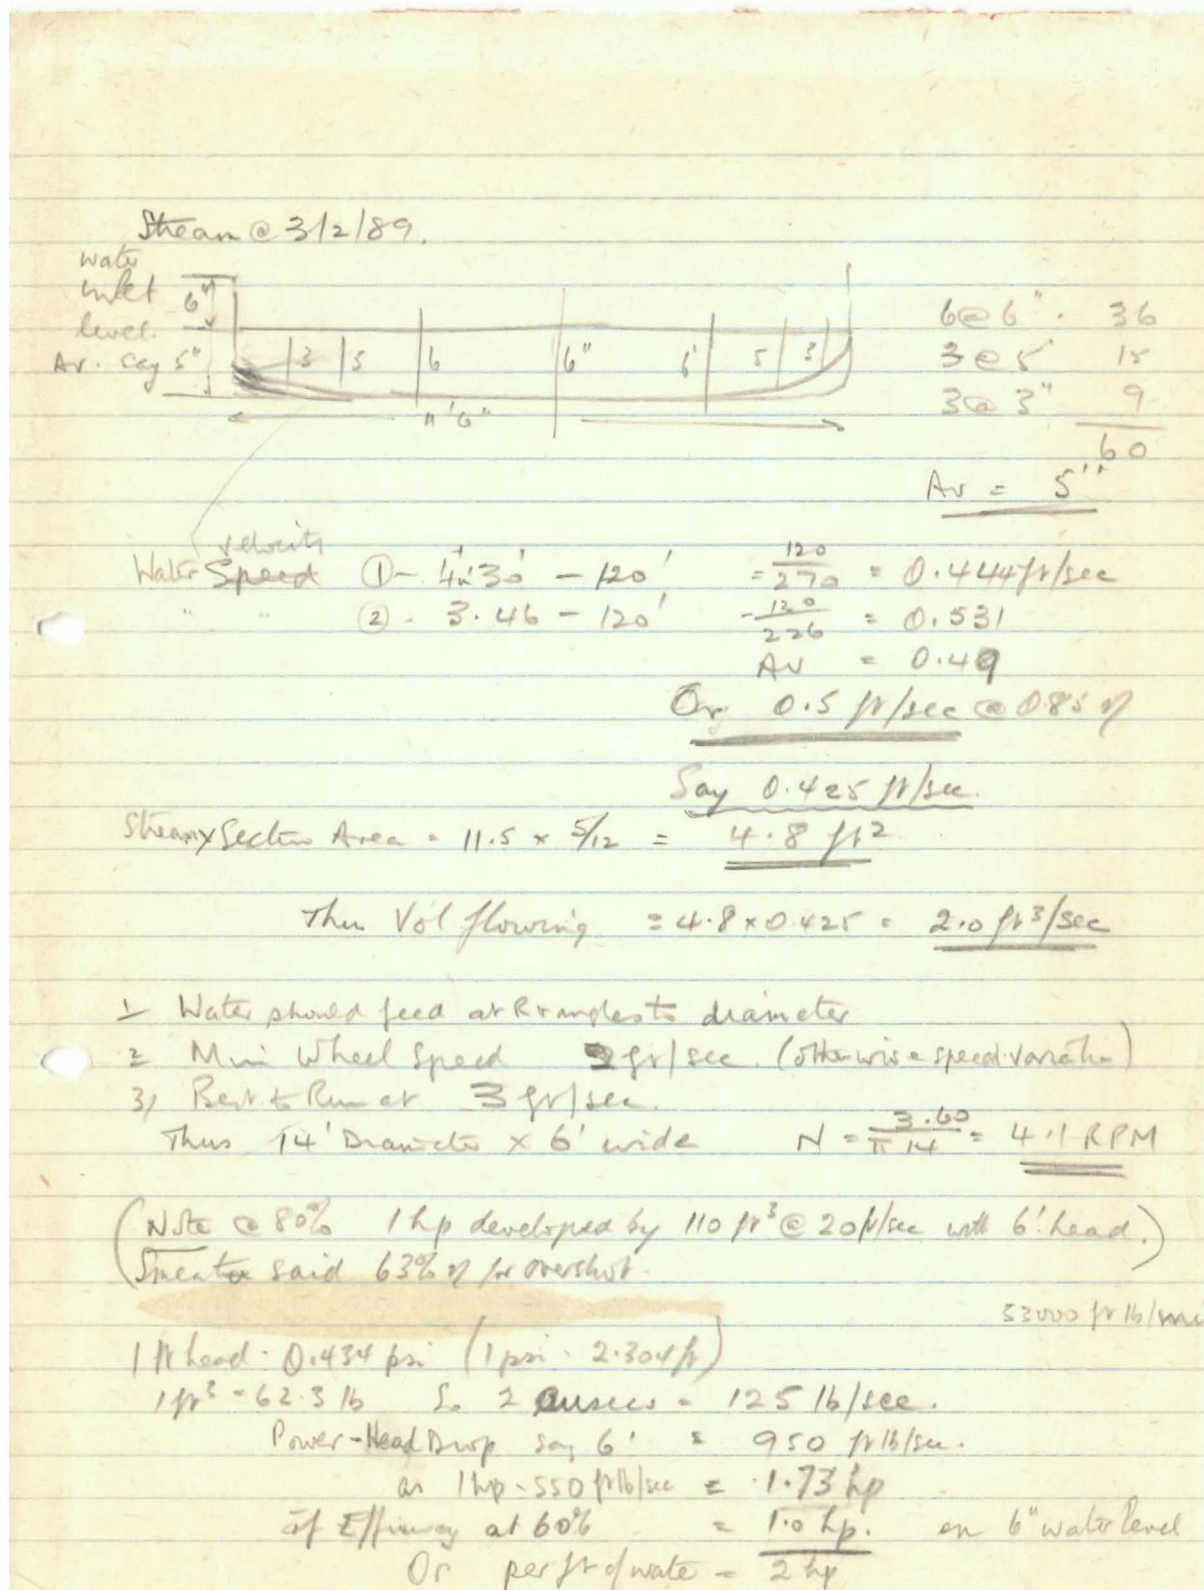 Stream @ 3/2/89.
water
inlet 6"
level.
Av. say 5" 3 5 6 6" 6' 5 3
11' 6"
6 @ 6" . 36
3 @ 5 15
3 @ 3" 9
60
Av = 5"
velocity
Water Speed ① - 4' 30" - 120' = 120/270 = 0.444 ft/sec
" " ② - 3.46 - 120' - 120/226 = 0.531
Av = 0.49
Or 0.5 ft/sec @ 0.85 η
Say 0.425 ft/sec.
Stream x Section Area = 11.5 x 5/12 = 4.8 ft²
Thus Vol flowing = 4.8 x 0.425 = 2.0 ft³/sec
1 Water should feed at Rt angles to diameter
2 Min Wheel Speed 2 ft/sec. (otherwise speed variation)
3) Best to Run at 3 ft/sec.
Thus 14' Diameter x 6' wide N = 3.60/π 14 = 4.1 RPM
(Note @ 80% 1 hp developed by 110 ft³ @ 20 ft/sec with 6' head.)
Smeaton said 63% η for overshot.
33000 ft lb/min
1 ft head - 0.434 psi (1 psi - 2.304 ft)
1 ft³ - 62.3 lb So 2 cusecs = 125 lb/sec.
Power - Head Drop say 6' = 950 ft lb/sec.
as 1 hp - 550 ft lb/sec = 1.73 hp
if Efficiency at 60% = 1.0 hp. on 6" water level
Or per ft of water - 2 hp